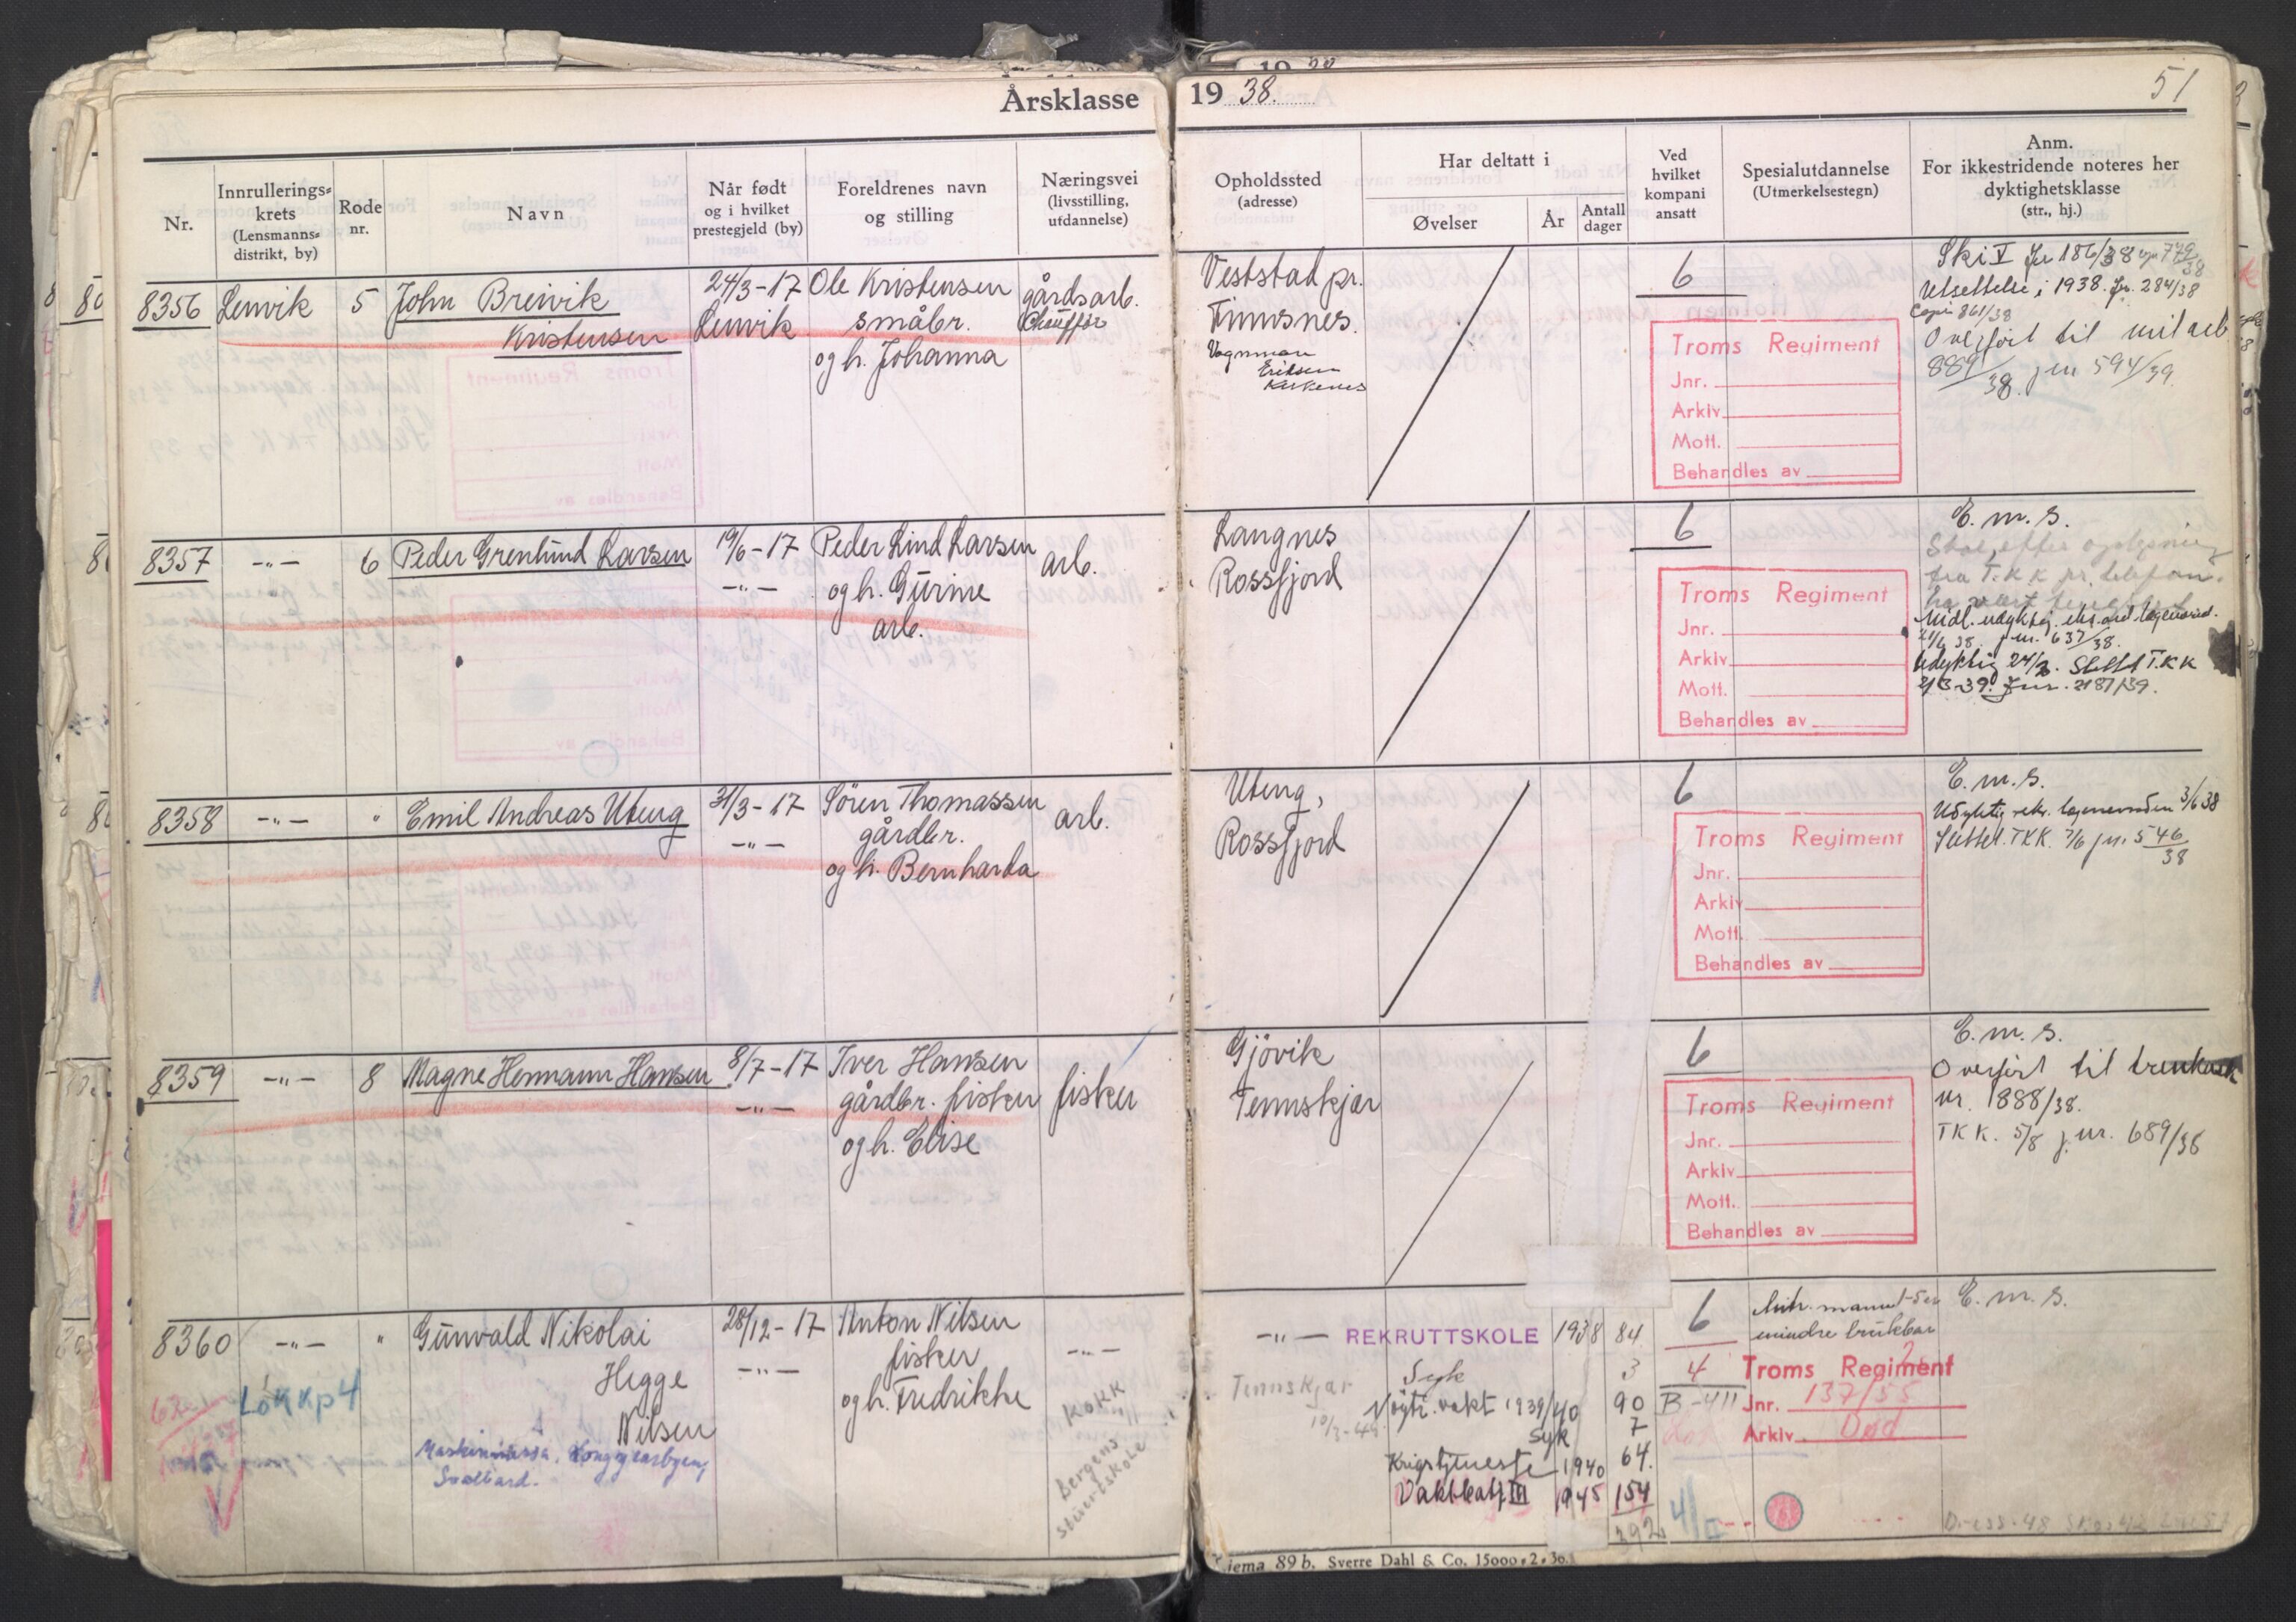 Årsklasse 19 38.
51
Nr.
Innrullerings-
krets
(Lensmanns-
distrikt, by)
Rode
nr.
Navn
Når født
og i hvilket
prestegjeld (by)
Foreldrenes navn
og stilling
Næringsvei
(livsstilling,
utdannelse)
Opholdssted
(adresse)
Har deltatt i
Øvelser
År
Antall
dager
Ved
hvilket
kompani
ansatt
Spesialutdannelse
(Utmerkelsestegn)
Anm.
For ikkestridende noteres her
dyktighetsklasse
(str., hj.)
8356
Lenvik
5
John Breivik
Kristensen
24/3-17
Lenvik
Ole Kristensen
småbr.
og h. Johanna
gårdsarb.
Chauffør
Veststad pr.
Finnsnes.
Vognmann
Eriksen
Kirkenes
6
Troms Regiment
Jnr.
Arkiv
Mott.
Behandles av
Ski V Jnr 186/38
Utsettelse i 1938. Jr. 284/38
861/38
Overført til mil arb
889/38. jnr 594/39.
8357
-"-
6
Peder Grenlund Larsen
19/6-17
-"-
Peder Lind Larsen
og h. Gurine
arb.
arb.
Langnes
Rossfjord
6
Troms Regiment
Jnr.
Arkiv
Mott.
Behandles av
E. m. s.
Skal efter oplysning
fra T.K.K pr. telefon.
ha vært
Midl. udyktig.
21/6 38. jnr. 637/38.
Udyktig 24/3. Slettet T.K.K
Jnr. 2187/39.
8358
-"-
"
Emil Andreas Uteng
31/3-17
-"-
Sören Thomassen
gårdbr.
og h. Bernharda
arb.
Uteng,
Rossfjord
6
Troms Regiment
Jnr.
Arkiv
Mott.
Behandles av
E. m. s.
Udyktig 3/6 38
Slettet. TKK. 7/6 jnr. 546/38
8359
-"-
8
Magne Hermann Hansen
8/7-17
-"-
Iver Hansen
gårdbr. fisker
og h. Elise
fisker
Gjövik
Tennskjær
6
Troms Regiment
Jnr.
Arkiv
Mott.
Behandles av
E. m. s.
Overført til
nr. 888/38.
TKK. 5/8 j. nr. 689/38
8360
-"-
"
Gunvald Nikolai
Hegge
Nilsen
28/12-17
-"-
Anton Nilsen
fisker
og h. Fredrikke
-"-
Kokk
Bergens
stuertskole
62
Longyearbyen,
Svalbard.
-"-
Tennskjær
REKRUTTSKOLE 1938 84.
Syk 3
Nøytr. vakt 1939/40 90
Syk 7
Krigstjeneste 1940 64.
Vaktbatj III 1945 154
392.
6
4
B-411
mindre brukbar
Troms Regiment
Jnr. 137/55
Arkiv. Død
E. m. s.
89 b. Sverre Dahl & Co. 15000. 2. 30.